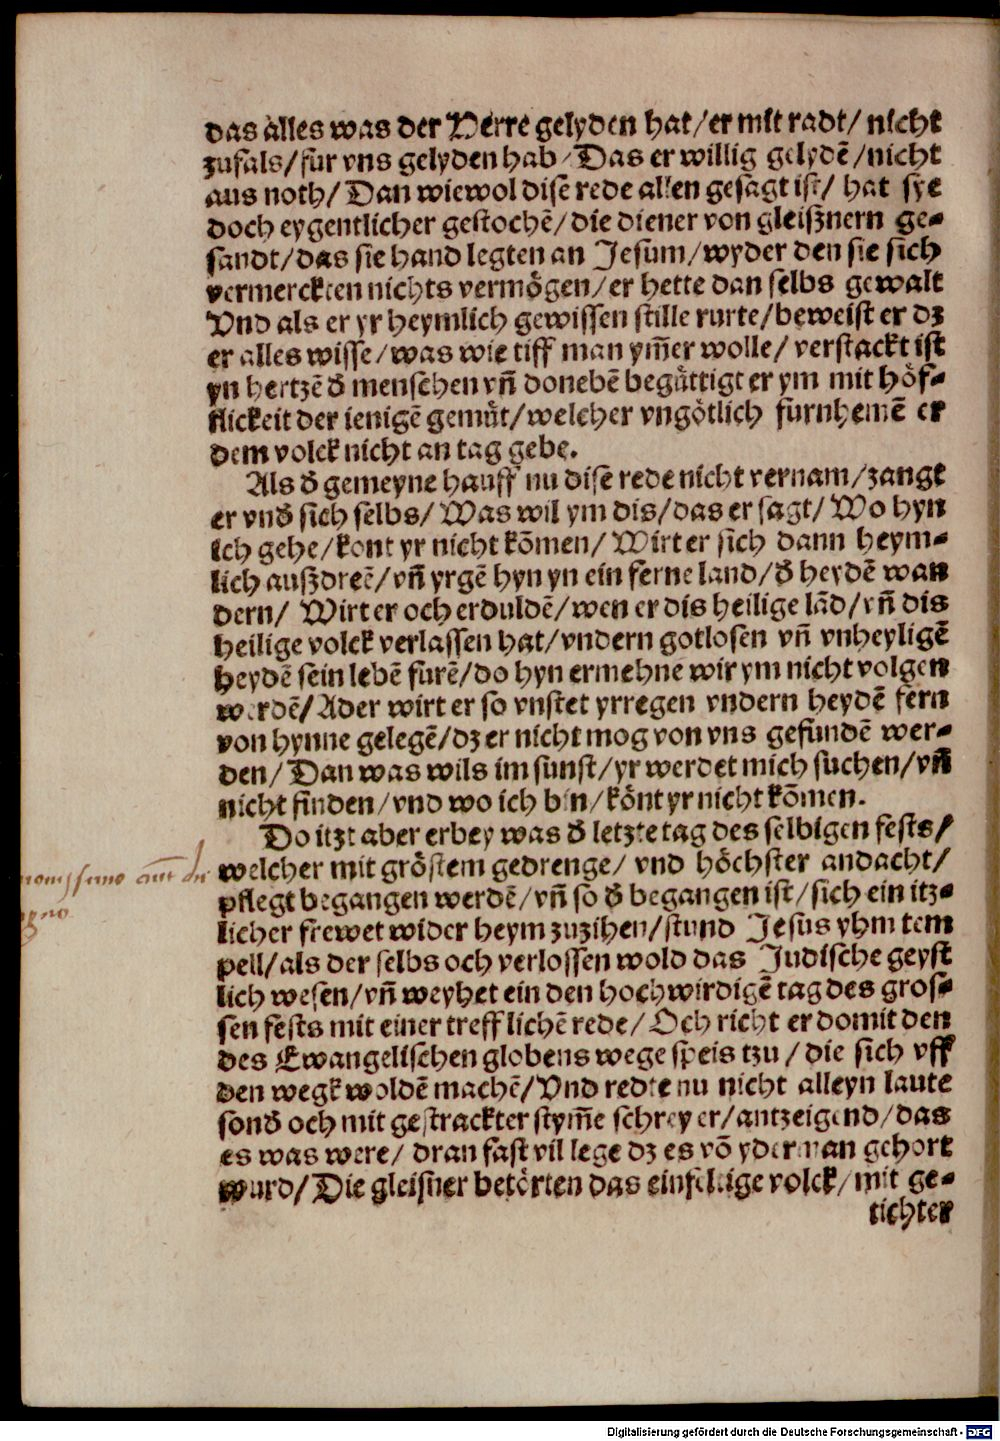 das alles was der Herre gelyden hat/er mit radt/ nicht
zufals/fur vns gelyden hab/Das er willig gelydē/nicht
aus noth/ Dan wiewol dise rede allen gesagt ist/ hat sye
doch eygentlicher gestochē/die diener von gleißnern ge-
sandt/das sie hand legten an Jesum/wyder den sie sich
vermerckten nichts vermögen/er hette dan selbs gewalt
Vnd als er yr heymlich gewissen stille rurte/beweist er dz
er alles wisse/was wie tiff man ym̄er wolle/ verstackt ist
yn hertzē d̕ menschen vn̄ donebē begüttigt er ym mit höf-
flickeit der ienigē gemüt/welcher vngötlich furnhemē er
dem volck nicht an tag gebe.
Als d̕ gemeyne hauff nu dise rede nicht vernam/zangt
er vnd̕ sich selbs/ Was wil ym dis/das er sagt/ Wo hyn
ich gehe/kont yr nicht kōmen/ Wirt er sich dann heym-
lich außdreē/vn̄ yrgē hyn yn ein ferne land/d̕ heydē wan
dern/ Wirt er och erduldē/wen er dis heilige lād/vn̄ dis
heilige volck verlassen hat/vndern gotlosen vn̄ vnheyligē
heydē sein lebē furē/do hyn ermehne wir ym nicht volgen
werdē/Ader wirt er so vnstet yrregen vndern heydē fern
von hynne gelegē/dz er nicht mog von vns gefundē wer-
den/Dan was wils im sunst/yr werdet mich suchen/vn̄
nicht finden/vnd wo ich bin/könt yr nicht kōmen.
Do itzt aber erbey was d̕ letzte tag des selbigen fests/
welcher mit gröstem gedrenge/ vnd höchster andacht/
pflegt begangen werdē/vn̄ so d̕ begangen ist/sich ein itz-
licher frewet wider heym zuzihen/stund Jesus yhm tem
pell/als der selbs och verlossen wold das Judische geyst
lich wesen/vn̄ weyhet ein den hochwirdigē tag des gros-
sen fests mit einer trefflichē rede/Och richt er domit den
des Ewangelischen globens wege speis tzu/die sich vff
den wegk woldē machē/Vnd redte nu nicht alleyn laute
sond̕ och mit gestrackter stym̄e schreyer/antzeigend/das
es was were/ dran fast vil lege dz es vō yderman gehort
wurd/Die gleisner betörten das einfeltige volck/mit ge-
tichter
Digitalisierung gefördert durch die Deutsche Forschungsgemeinschaft - DFG